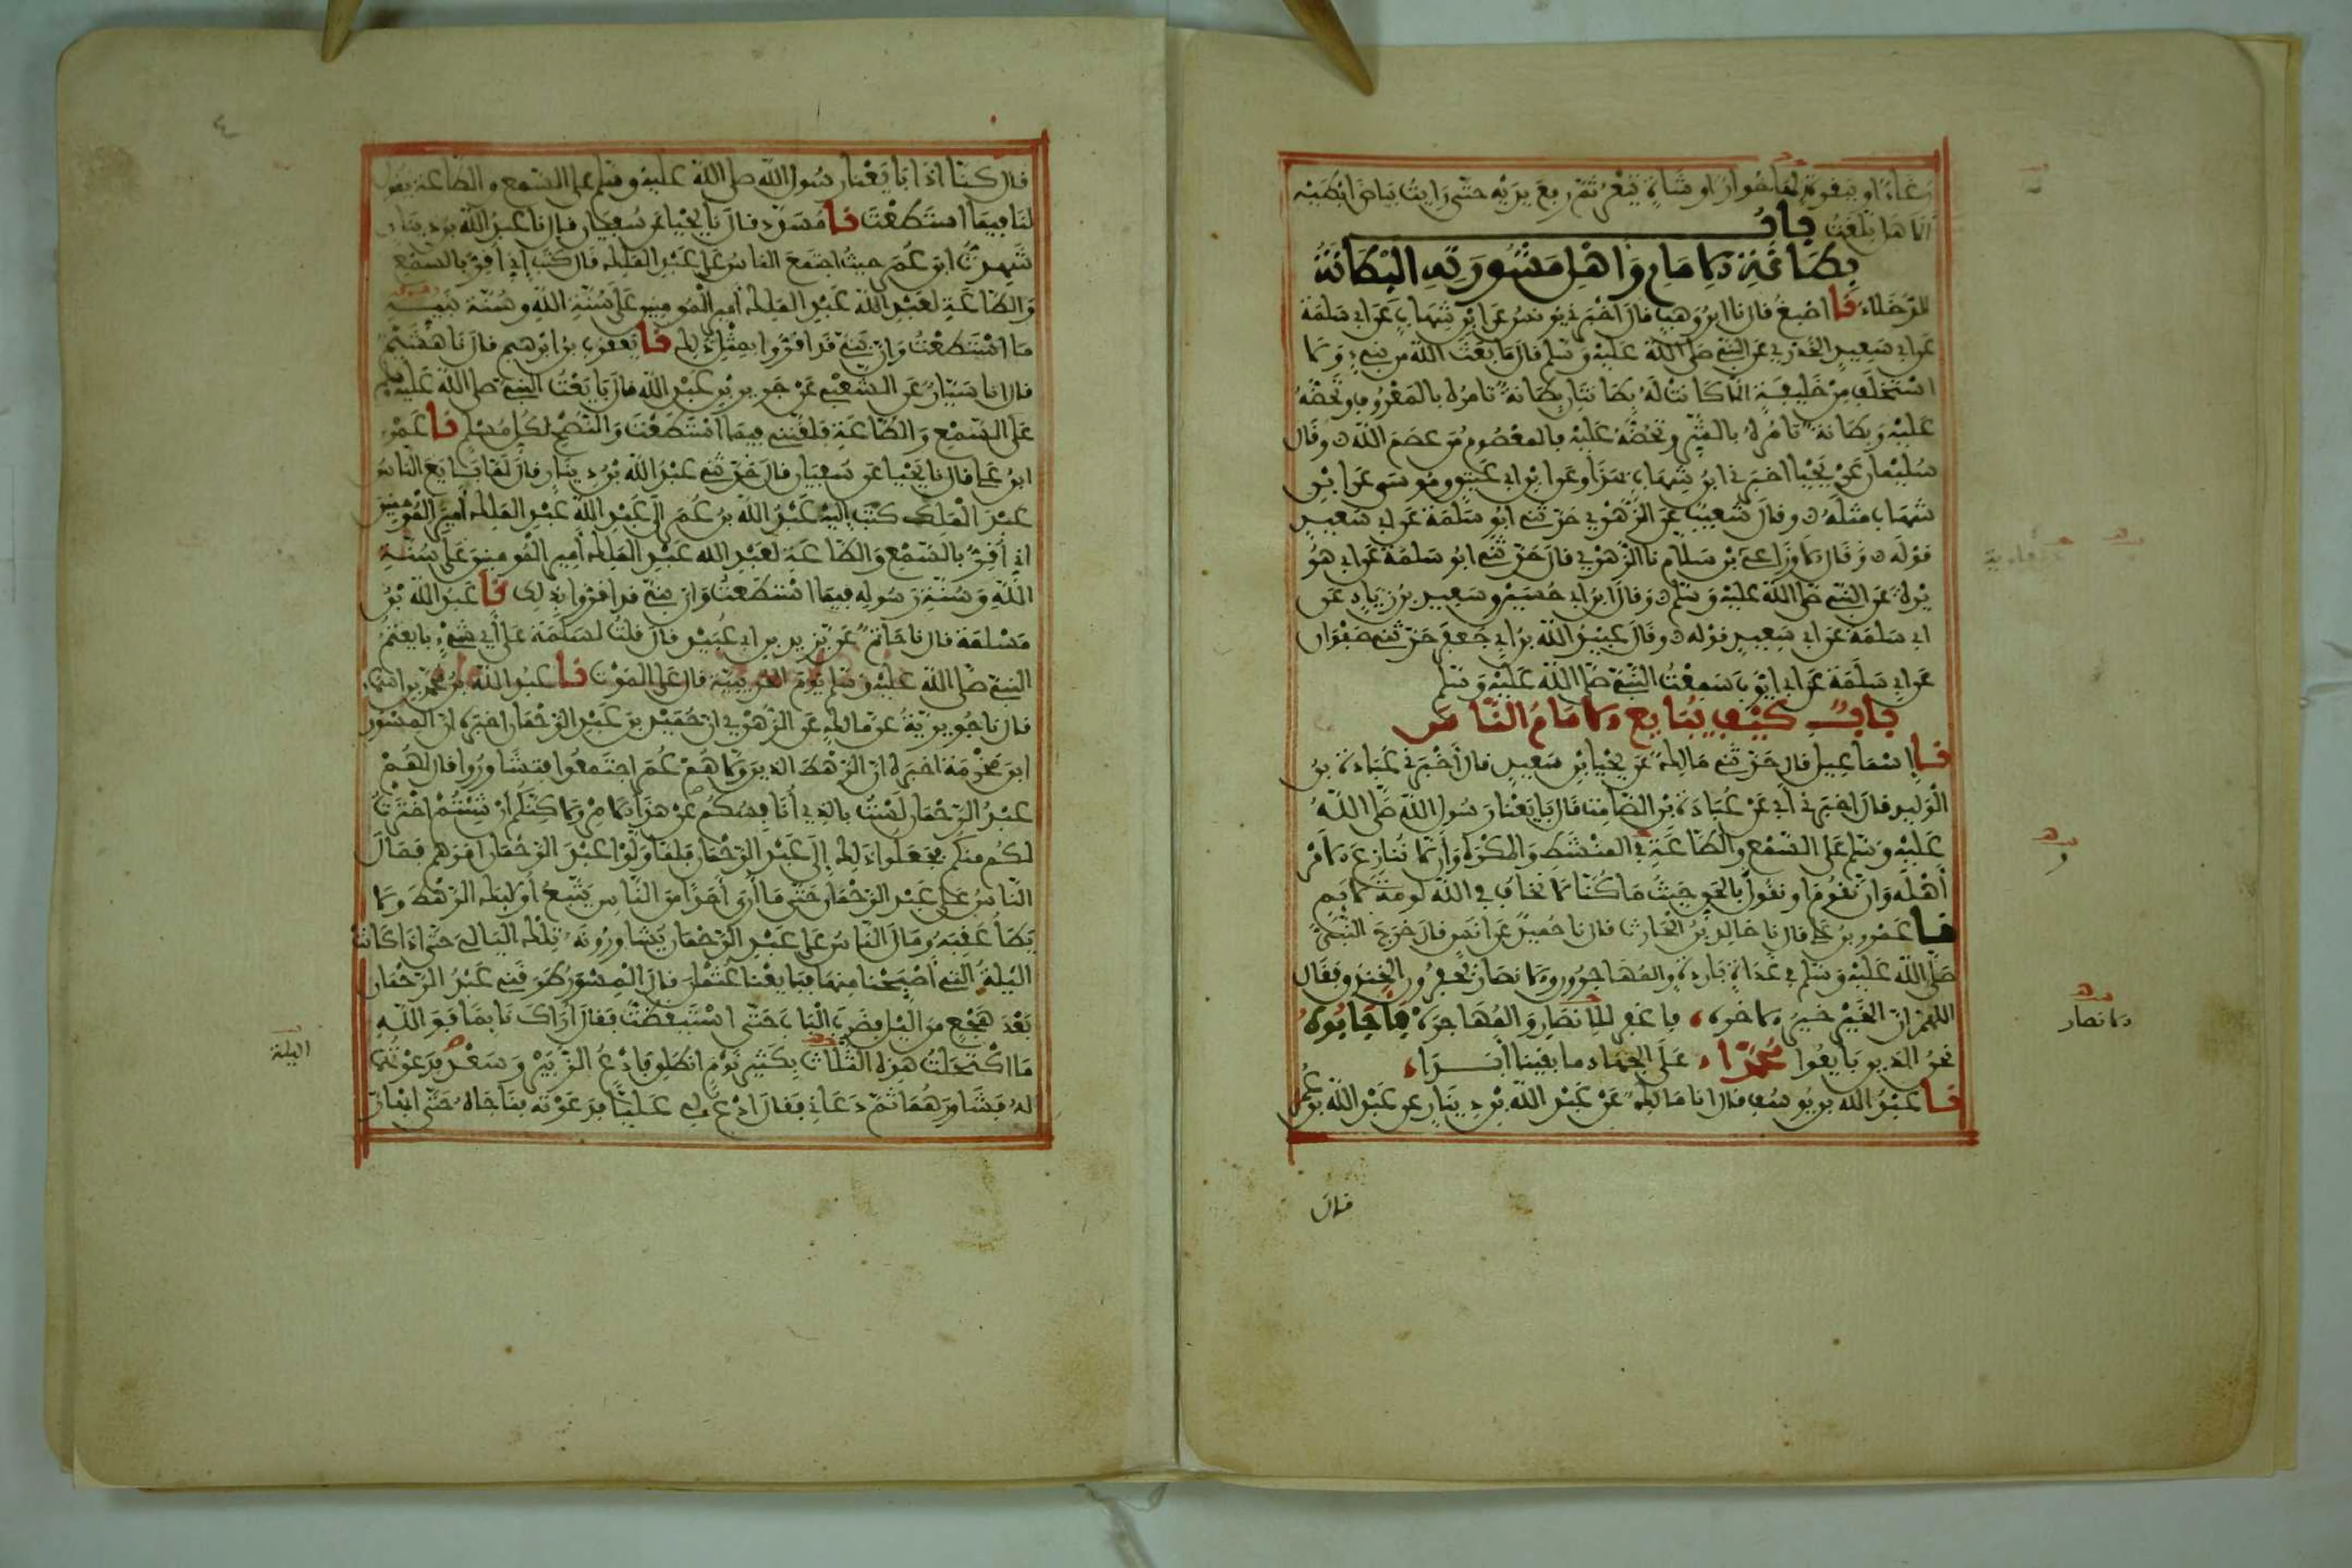 رغاء او ببقرة لها خوار او شاة تيعر ثم رفع يديه حتى رايت بياض ابطيه
الا هل بلغت باب
بطانة الامام واهل مشورته البطانة
الدخلاء نا اصبغ قال نا ابن وهب قال اخبرني يونس عن ابن شهاب عن ابي سلمة
عن ابي سعيد الخدري عن النبي صلى الله عليه وسلم قال ما بعث الله من نبي ولا
استخلف من خليفة الا كانت له بطانتان بطانة تامره بالمعروف وتحضه
عليه وبطانة تامره بالشر وتحضه عليه فالمعصوم من عصم الله وقال
سليمان عن يحيا اخبرني ابن شهاب بهذا وعن ابن ابي عتيق وموسى عن ابن
شهاب مثله وقال شعيب عن الزهري حدثني ابو سلمة عن ابي سعيد
قوله وقال الاوزاعي بن سلام نا الزهري قال حدثني ابو سلمة عن ابي هر
يرة عن النبي صلى الله عليه وسلم وقال ابن ابي حسين وسعيد بن زياد عن
ابي سلمة عن ابي سعيد قوله وقال عبيد الله بن ابي جعفر حدثني صفوان
عن ابي سلمة عن ابي ايوب سمعت النبي صلى الله عليه وسلم
باب كيف يبايع الامام الناس
نا اسماعيل قال حدثني مالك عن يحيا بن سعيد قال اخبرني عبادة بن
الوليد قال اخبرني ابي عن عبادة بن الصامت قال بايعنا رسول الله صلى الله
عليه وسلم على السمع والطاعة في المنشط والمكره وان لا ننازع الامر
اهله وان نقوم او نقول بالحق حيث ما كنا لا نخاف في الله لومة لايم
نا عمرو بن علي قال نا خالد بن الحارث قال نا حميد عن انس قال خرج النبي
صلى الله عليه وسلم في غداة باردة والمهاجرون والانصار يحفرون الخندق فقال
اللهم ان الخير خير الاخره فاغفر للانصار والمهاجره فاجابوه
نحن الذين بايعوا محمدا على الجهاد ما بقينا ابدا
نا عبد الله بن يوسف قال انا مالك عن عبد الله بن دينار عن عبد الله بن عمر
و
الانصار
قال
٤
قال كنا اذا بايعنا رسول الله صلى الله عليه وسلم على السمع والطاعة يقول
لنا فيما استطعت نا مسدد قال نا يحيا عن سفيان قال نا عبد الله بن دينار
شهدت ابن عمر حيث اجتمع الناس على عبد الملك قال كتب اني اقر بالسمع
والطاعة لعبد الله عبد الملك امير المومنين على سنة الله وسنة نبيه
ما استطعت وان بني قد اقروا بمثل ذلك نا يعقوب بن ابرهيم قال نا هشيم
قال انا سيار عن الشعبي عن جرير بن عبد الله قال بايعت النبي صلى الله عليه وسلم
على السمع والطاعة فلقنني فيما استطعت والنصح لكل مسلم نا عمرو
ابن علي قال نا يحيا عن سفيان قال حدثني عبد الله بن دينار قال لما بايع الناس
عبد الملك كتب اليه عبد الله بن عمر الى عبد الله عبد الملك امير المومنين
اني اقر بالسمع والطاعة لعبد الله عبد الملك امير المومنين على سنة
الله وسنة رسوله فيما استطعت وان بني قد اقروا بذلك نا عبد الله بن
مسلمة قال نا حاتم عن يزيد بن ابي عبيد قال قلت لسلمة على اي شيء بايعتم
النبي صلى الله عليه وسلم يوم الحديبية قال على الموت نا عبد الله بن محمد بن اسماء
قال نا جويرية عن مالك عن الزهري ان حميد بن عبد الرحمان اخبره ان المسور
ابن مخرمة اخبره ان الرهط الذين ولاهم عمر اجتمعوا فتشاوروا فقال لهم
عبد الرحمان لست بالذي انافسكم عن هذا الامر ولاكنكم ان شيتم اخترت
لكم منكم فجعلوا ذلك الى عبد الرحمان فلما ولوا عبد الرحمان امرهم فمال
الناس على عبد الرحمان حتى ما ارى احدا من الناس يتبع اوليك الرهط ولا
يطا عقبه ومال الناس على عبد الرحمان يشاورونه تلك اليالي حتى اذا كانت
اليلة التي اصبحنا منها فبايعنا عثمان قال المسور طرقني عبد الرحمان
بعد هجع من اليل فضرب الباب حتى استيقظت فقال اراك نايما فو الله
ما اكتحلت هذه الثلاث بكثير نوم انطلق فادع الزبير وسعدا فدعوتهما
له فشاورهما ثم دعاني فقال ادع لي عليا فدعوته فناجاه حتى ابهار
اليلة